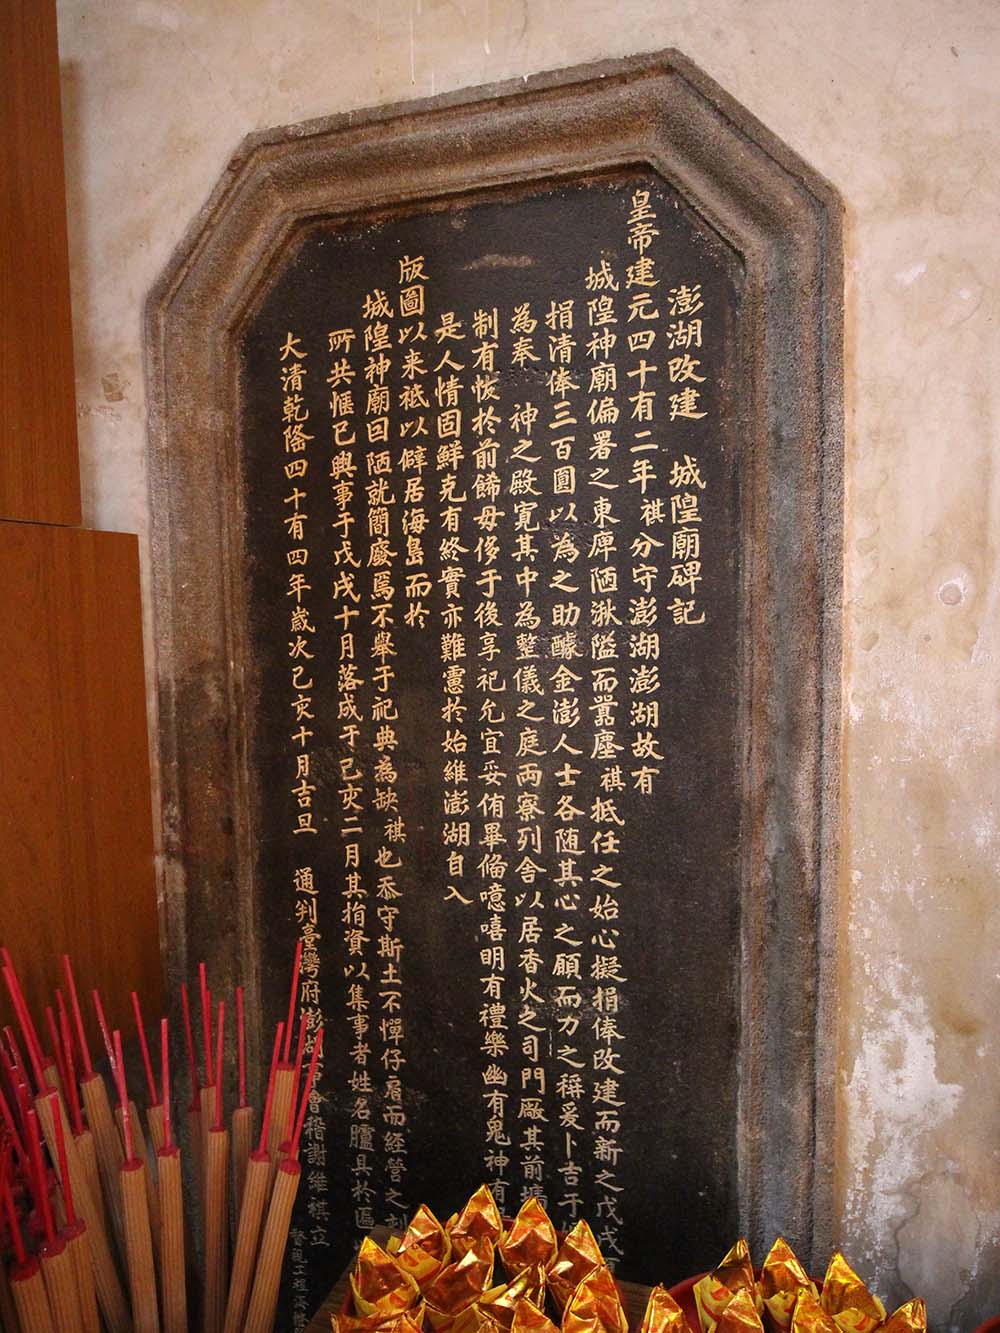 澎湖改建　城隍廟碑記
皇帝建元四十有二年祺分守澎湖澎湖故有
城隍神廟偏署之東庳陋湫隘而囂塵祺抵任之始心擬捐俸改建而新之戊戌
捐清俸三百圓以為之助醵金澎人士各随其心之願而力之稱爰卜吉于
為奉　神之殿寬其中為整儀之庭両寮列舍以居香火之司門廠其前
制有恢扵前餙毋侈于後享祀允宜妥侑畢俻噫嘻明有禮樂幽有鬼神有
是人情固鮮克有終實亦難慮扵始維澎湖自入
版圖以来祗以僻居海島而扵
城隍神廟因陋就簡廢焉不舉于祀典為缺祺也忝守斯土不憚仔肩而經營之
所共愜已興事于戊戌十月落成于己亥二月其捐資以集事者姓名臚具扵匾
大清乾隆四十有四年嵗次己亥十月吉旦　通判臺灣府澎湖事會稽謝維祺立
督